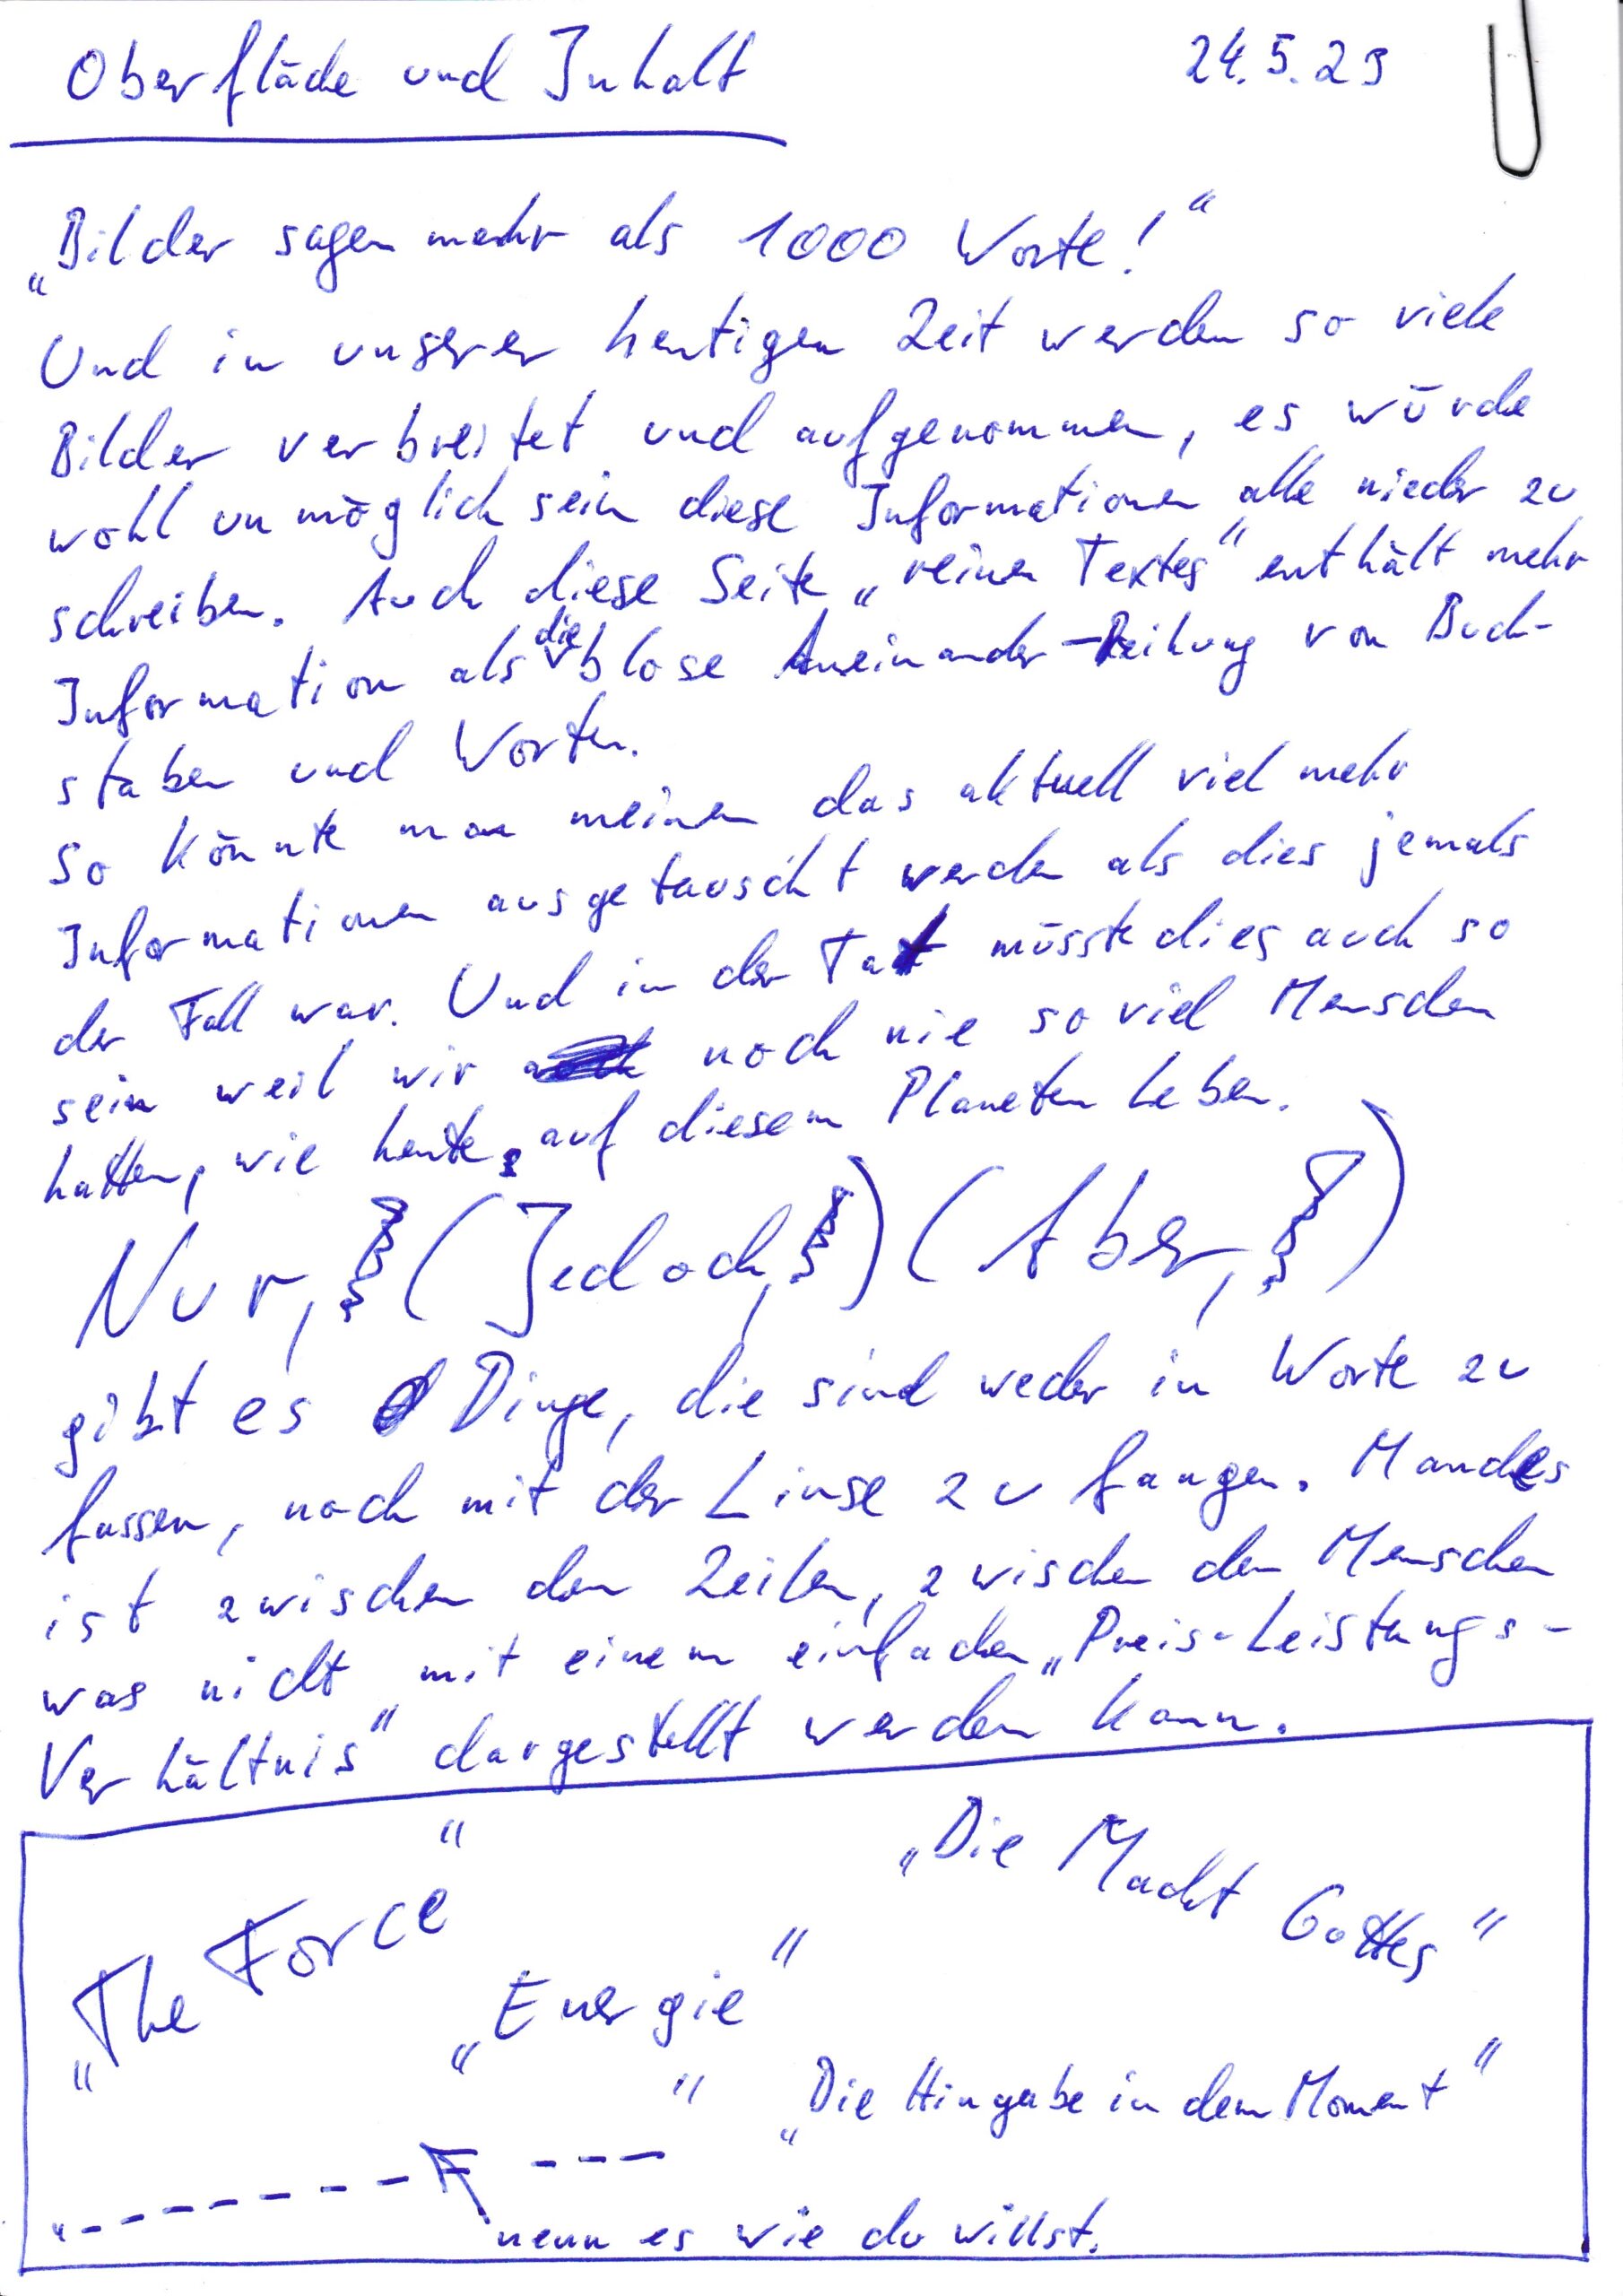 Oberfläche und Inhalt 24.5.23
„Bilder sagen mehr als 1000 Worte!“
Und in unserer heutigen Zeit werden so viele
Bilder verbreitet und aufgenommen, es würde
wohl unmöglich sein diese Informationen alle nieder zu
schreiben. Auch diese Seite „reinen Textes“ enthält mehr
Information als die blose Aneinander-Reihung von Buch-
staben und Worten.
So könnte man meinen das aktuell viel mehr
Informationen ausgetauscht werden als dies jemals
der Fall war. Und in der Tat müsste dies auch so
sein weil wir noch nie so viel Menschen
hatten, wie heute, auf diesem Planeten Leben.
Nur, (Jedoch,) (Aber,)
gibt es Dinge, die sind weder in Worte zu
fassen, noch mit der Linse zu fangen. Manches
ist zwischen den Zeilen, zwischen den Menschen
was nicht mit einem einfachen „Preis-Leistungs-
Verhältnis“ dargestellt werden kann.
„The Force“ „Die Macht Gottes“
„Energie“
„Die Hingabe in dem Moment“
„----------“
nenn es wie du willst.